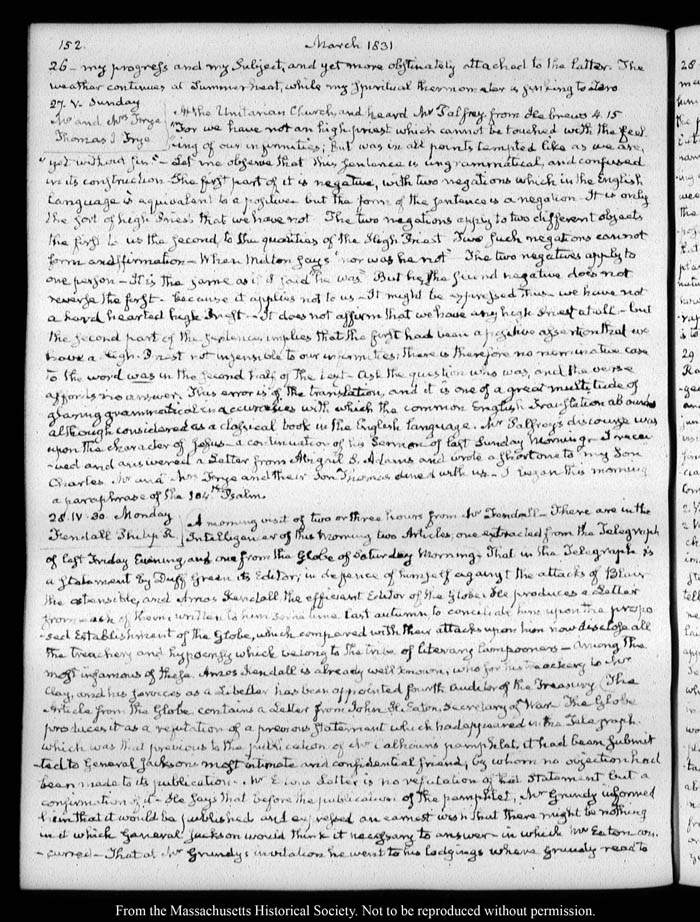 152.
March 1831
26 - my progress and my Subject, and yet more obstinately attached to the latter. The
weather continues at Summer heat, while my Spiritual thermometer is sinking to Zero
27. V. Sunday
Mr and Mrs Frye
Thomas J. Frye
At the Unitarian Church, and heard Mr Palfrey from Hebrews 4. 15
"For we have not an high priest which cannot be touched with the feel-
ing of our infirmities; but was in all points tempted like as we are,
"yet without sin" - Let me observe that this sentence is ungrammatical, and confused
in its construction. The first part of it is negative, with two negations which in the English
Language is equivalent to a positive but the form of the sentence is a negation - It is only
the sort of high Priest that we have not. The two negations apply to two different objects
the first to us the second to the qualities of the High Priest. Two such negations cannot
form an affirmation - When Milton says "nor was he not" The two negatives apply to
one person - It is the same as if I said "he was" But here the second negative does not
reverse the first - because it applies not to us - It might be expressed thus - we have not
a hard hearted high Priest - It does not affirm that we have any high Priest at all - but
the second part of the sentence implies that the first had been a positive assertion that we
have a High-Priest not insensible to our infirmities; there is therefore no nominative case
to the word was in the second half of the text - Ask the question who was, and the verse
affords no answer. This error is of the translation, and it is one of a great multitude of
glaring grammatical inaccuracies with which the common English Translation abounds
although considered as a classical book in the English language. Mr Palfrey's discourse was
upon the character of Jesus - a continuation of his Sermon of last Sunday Morning - I recei-
-ved and answered a Letter from Abigail S. Adams and wrote a short one to my Son
Charles. Mr and Mrs Frye and their Son Thomas dined with us - I began this morning
a paraphrase of the 104th Psalm.
28. IV. 30. Monday
Fendall Philip R.
A morning visit of two or three hours from Mr Fendall - There are in the
Intelligencer of this Morning two Articles, one extracted from the Telegraph
of last Friday Evening, and one from the Globe of Saturday Morning. That in the Telegraph is
a Statement by Duff Green its Editor, in defence of himself against the attacks of Blair
the ostensible, and Amos Kendall the efficient Editor of the Globe. He produces a Letter
from each of them, written to him some time last autumn to conciliate him upon the propo
-sed Establishment of the Globe, which compared with their attacks upon him now disclose all
the treachery and hypocrisy which belong to the tribe of literary Lampooners - Among the
most infamous of these. Amos Kendall is already well known, who for his treachery to Mr
Clay, and his services as a Libeller has been appointed fourth Auditor of the Treasury. The
Article from the Globe contains a Letter from John H. Eaton, Secretary of War. The Globe
produces it as a refutation of a previous Statement which had appeared in the Telegraph.
which was that previous to the publication of Mr Calhoun's pamphlet, it had been submit
-ted to General Jackson's most intimate and confidential friend, by whom no objection had
been made to its publication - Mr Eaton's Letter is no refutation of that Statement but a
confirmation of it - He says that before the publication of the pamphlet, Mr Grundy informed
him that it would be published and expressed an earnest wish that there might be nothing
in it which General Jackson would think it necessary to answer - in which Mr Eaton con-
-curred - That at Mr Grundy's invitation he went to his lodgings where Grundy read to
From the Massachusetts Historical Society. Not to be reproduced without permission.